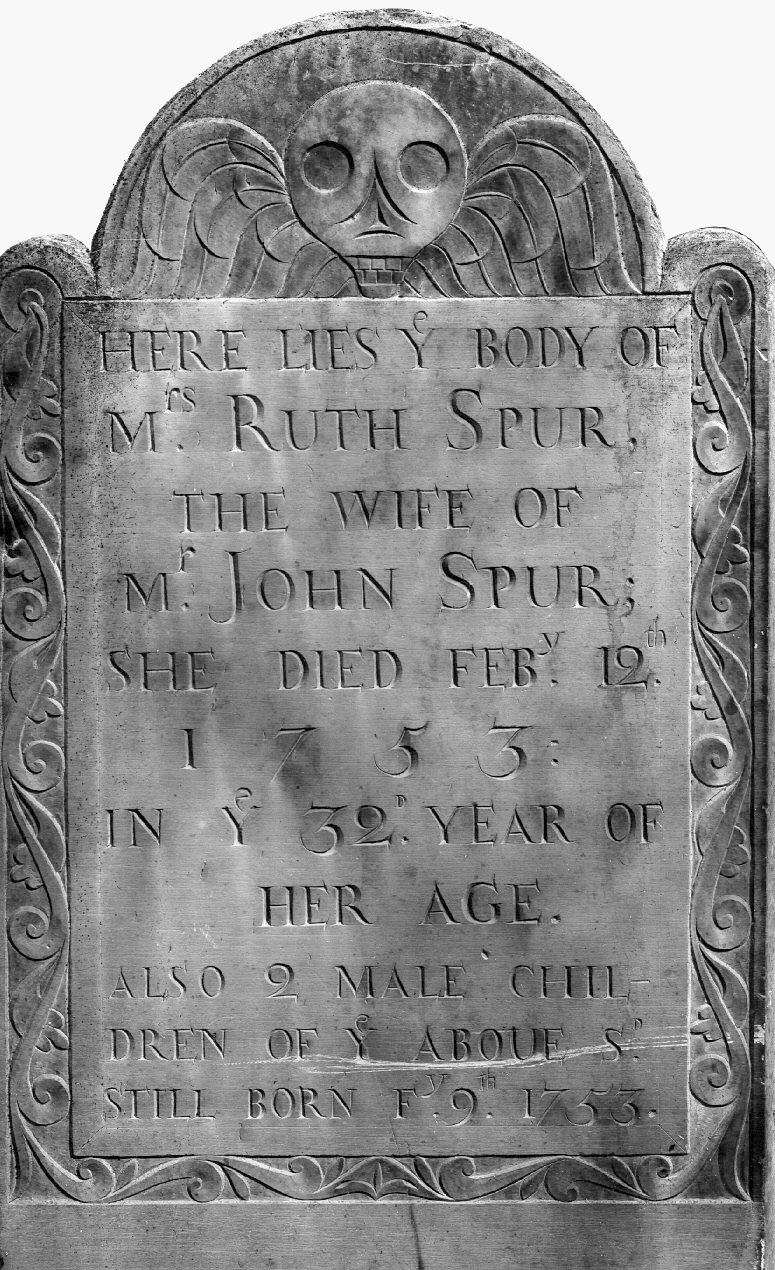 HERE LIES Yᵉ BODY OF
Mʳˢ. RUTH SPUR,
THE WIFE OF
Mʳ. JOHN SPUR;
SHE DIED FEBʸ. 12ᵗʰ.
1753:
IN Yᵉ 32ᴰ. YEAR OF
HER AGE.
ALSO 2 MALE CHIL-
DREN OF Yᵉ ABOUE Sᴰ.
STILL BORN Fʸ. 9ᵗʰ. 1753.